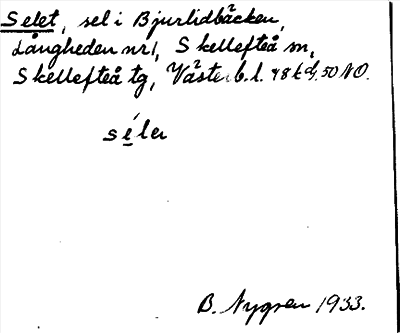 Selet, sel i Bjurlidbäcken,
Långheden nr 1, Skellefteå sn,
Skellefteå tg, Västerb. l. 48 50 NO.
séler
B. Nygren 1933.